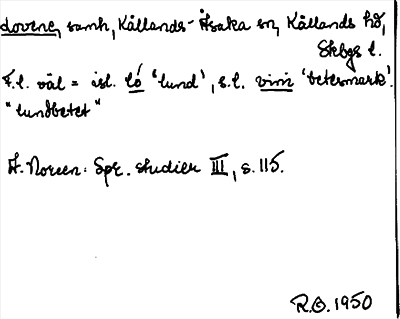 Lovene, samh, Kållands-Åsaka sn, Kållands hd,
Skbgs l.
F.l. väl = isl. ló 'lund', s.l. vin 'betesmark'.
"lundbetet"
A. Noreen: Spr. studier III, s. 115.
R.O. 1950